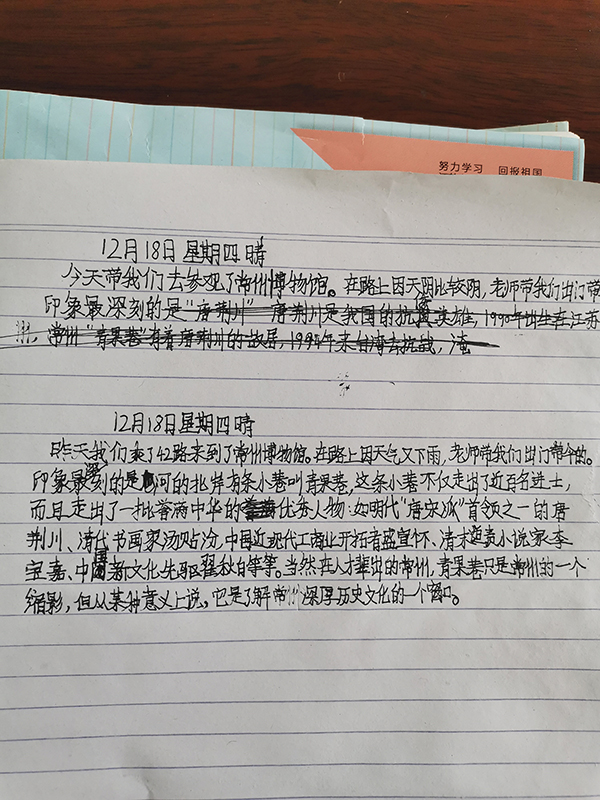 努力学习 回报祖国
12月18日 星期四 晴
今天带我们去参观了常州博物馆。在路上因天阴比较阴,老师带我们出门带
印象最深刻的是“唐荆川” 唐荆川是我国的抗英雄,1990年出生在江苏
常州“青果巷”有着唐荆川的故居,1995年来自海去抗战,
12月18日星期四 晴
昨天我们乘了42路来到了常州博物馆。在路上因天气又下雨,老师带我们出门带伞的。
印象最深刻的是河的北岸有条小巷叫青果巷,这条小巷不仅走出了近百名进士,
而且走出了一批誉满中华的优秀人物:如明代“唐宋派”首领之一的唐
荆川、清代书画家汤贻汾,中国近现代工商业开拓者盛宣怀、清末谴责小说家李
宝嘉、中国新文化先驱瞿秋白等等。当然在人才辈出的常州,青果巷只是常州的一个
缩影,但从某种意义上说,它是了解常州深厚历史文化的一个窗口。